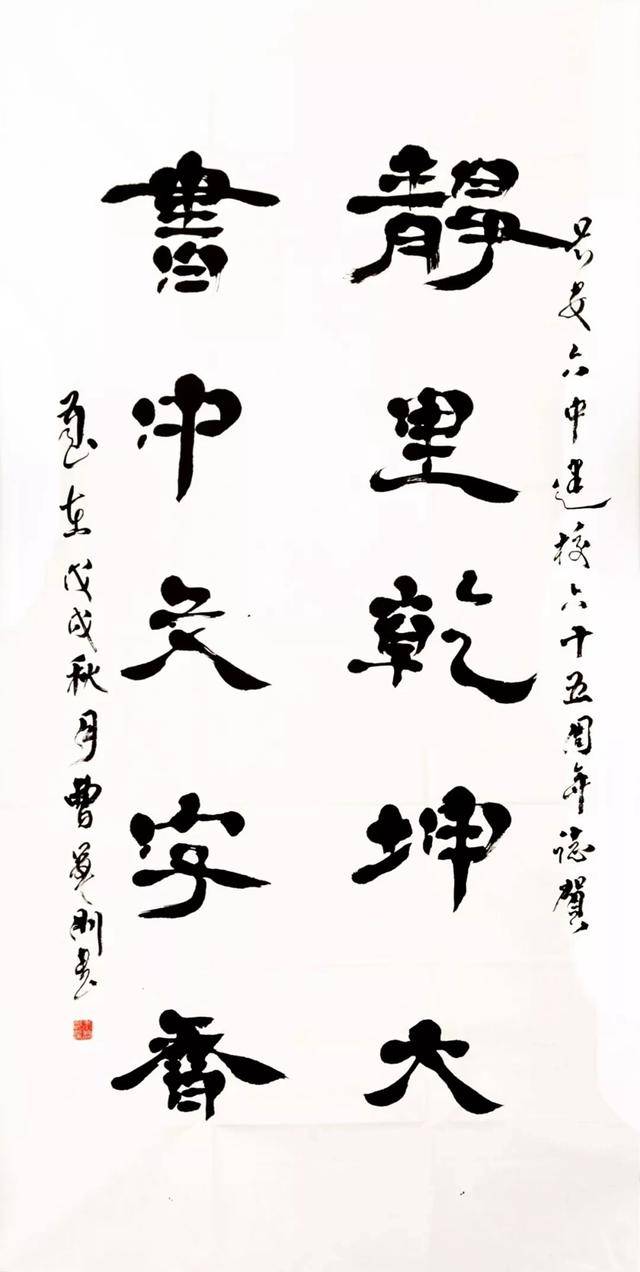 安六中建校六十五周年誌賀
靜里乾坤大
書中文字香
歲在戊戌秋月曹剛書